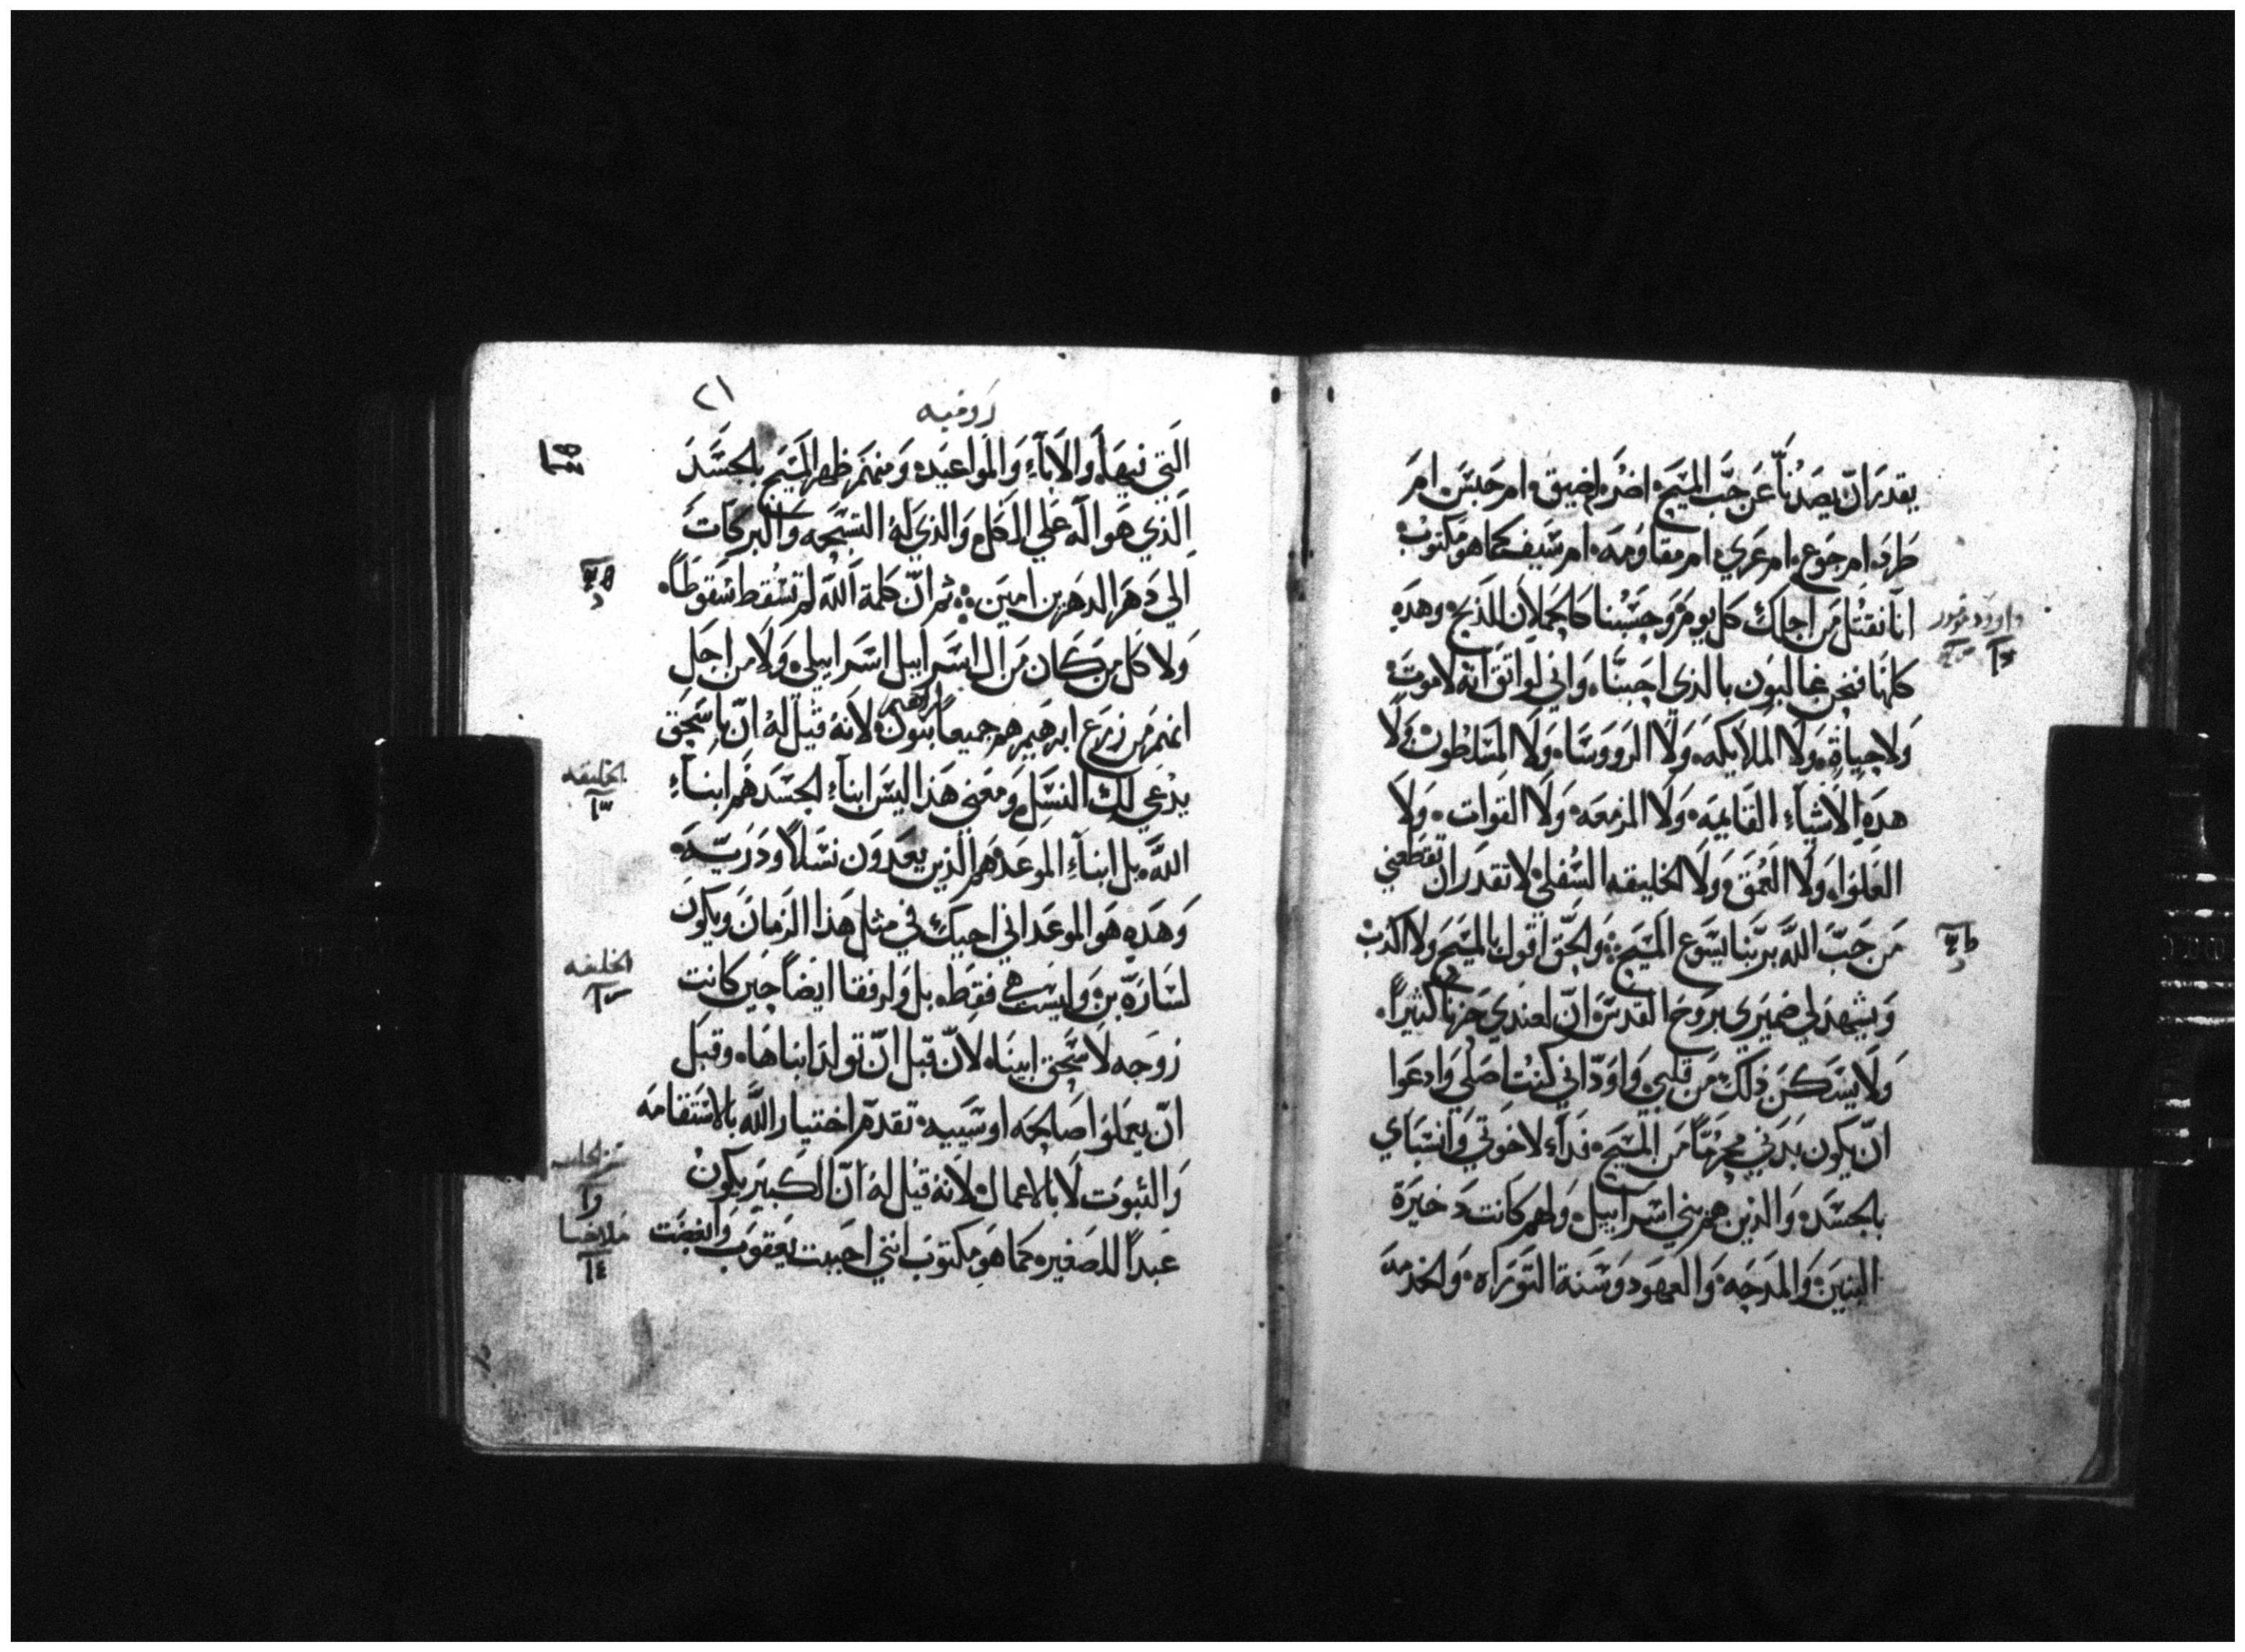 يقدر ان يصدنا عن حب المسيح اضر ام ضيق ام حبس ام
طرد ام جوع ام عري ام مقاومه ام سيف كما هو مكتوب
اننا نقتل من اجلك كل يوم وحسبنا كالحملان للذبح وهده
كلها فنحن غالبون بالذي احبنا واني لواثق انه لا موت
ولا حياة ولا الملايكه ولا الرووسا ولا المسلطون ولا
هده الاشياء القايمه ولا المزمعه ولا القوات ولا
العلو ولا العمق ولا الخليقه السفلي لا تقدر ان تقطعني
من حب الله بربنا يسوع المسيح والحق اقول بالمسيح ولا اكذب
ويشهد لي ضميري بروح القدس ان لعندي حزنا كثيرا
ولا يسكن ذلك من قلبي واود اني كنت اصلي وادعوا
ان يكون بدني محرما من المسيح فداء لاخوتي وانسباي
بالجسد والذين هم بني اسراييل ولهم كانت دخيرة
البنين والمدحه والعهود وسنة التوراه والخدمه
داوود مزمور
روميه
٢١
التي فيها والاباء والمواعيد ومنهم ظهر المسيح بالجسد
الذي هو اله علي الكل والذي له التسبحه والبركات
الي دهر الدهرين امين ثم ان كلمة الله لم تسقط سقوطا
ولا كل من كان من ال اسراييل اسراييلي ولا من اجل
انهم من زرع ابرهيم هم جميعا بنون لابرهيم لانه قيل له ان باسحق
يدعي لك النسل ومعني هذا ليس ابناء الجسد هم ابناء
الله بل ابناء الموعد هم الذين يعدون نسلا ودريه
وهده هو الموعد اني اجيك في مثل هذا الزمان ويكون
لساره بن وليست هي فقط بل ولرفقا ايضا حين كانت
زوجه لاسحق ابينا لان قبل ان تولد ابناها وقبل
ان يعملوا صالحه او سييه تقدم اختيار الله بالاستقامه
والثبوت لا بالاعمال لانه قيل له ان الكبير يكون
عبدا للصغير كما هو مكتوب انني احببت يعقوب وابغضت
الخليقه
الخليقه
ملاخيا